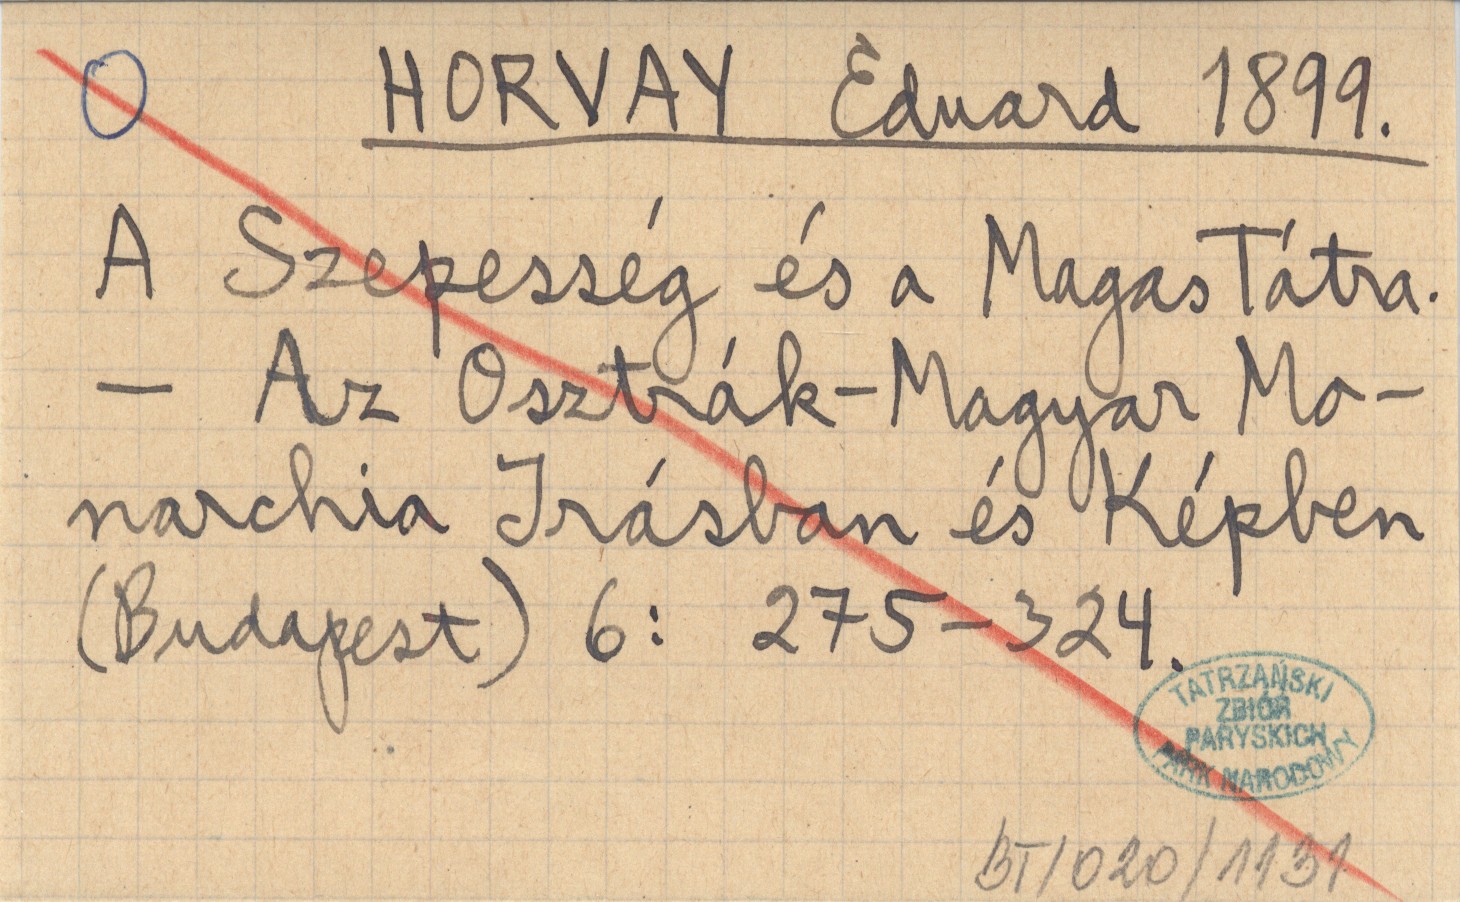 O HORVAY Eduard 1899.
A Szepesség és a Magas Tátra.
— Az Osztrák-Magyar Mo-
narchia Irásban és Képben
(Budapest) 6: 275-324.
TATRZAŃSKI
ZBIÓR
PARYSKICH
PARK NARODOWY
BT/020/1131